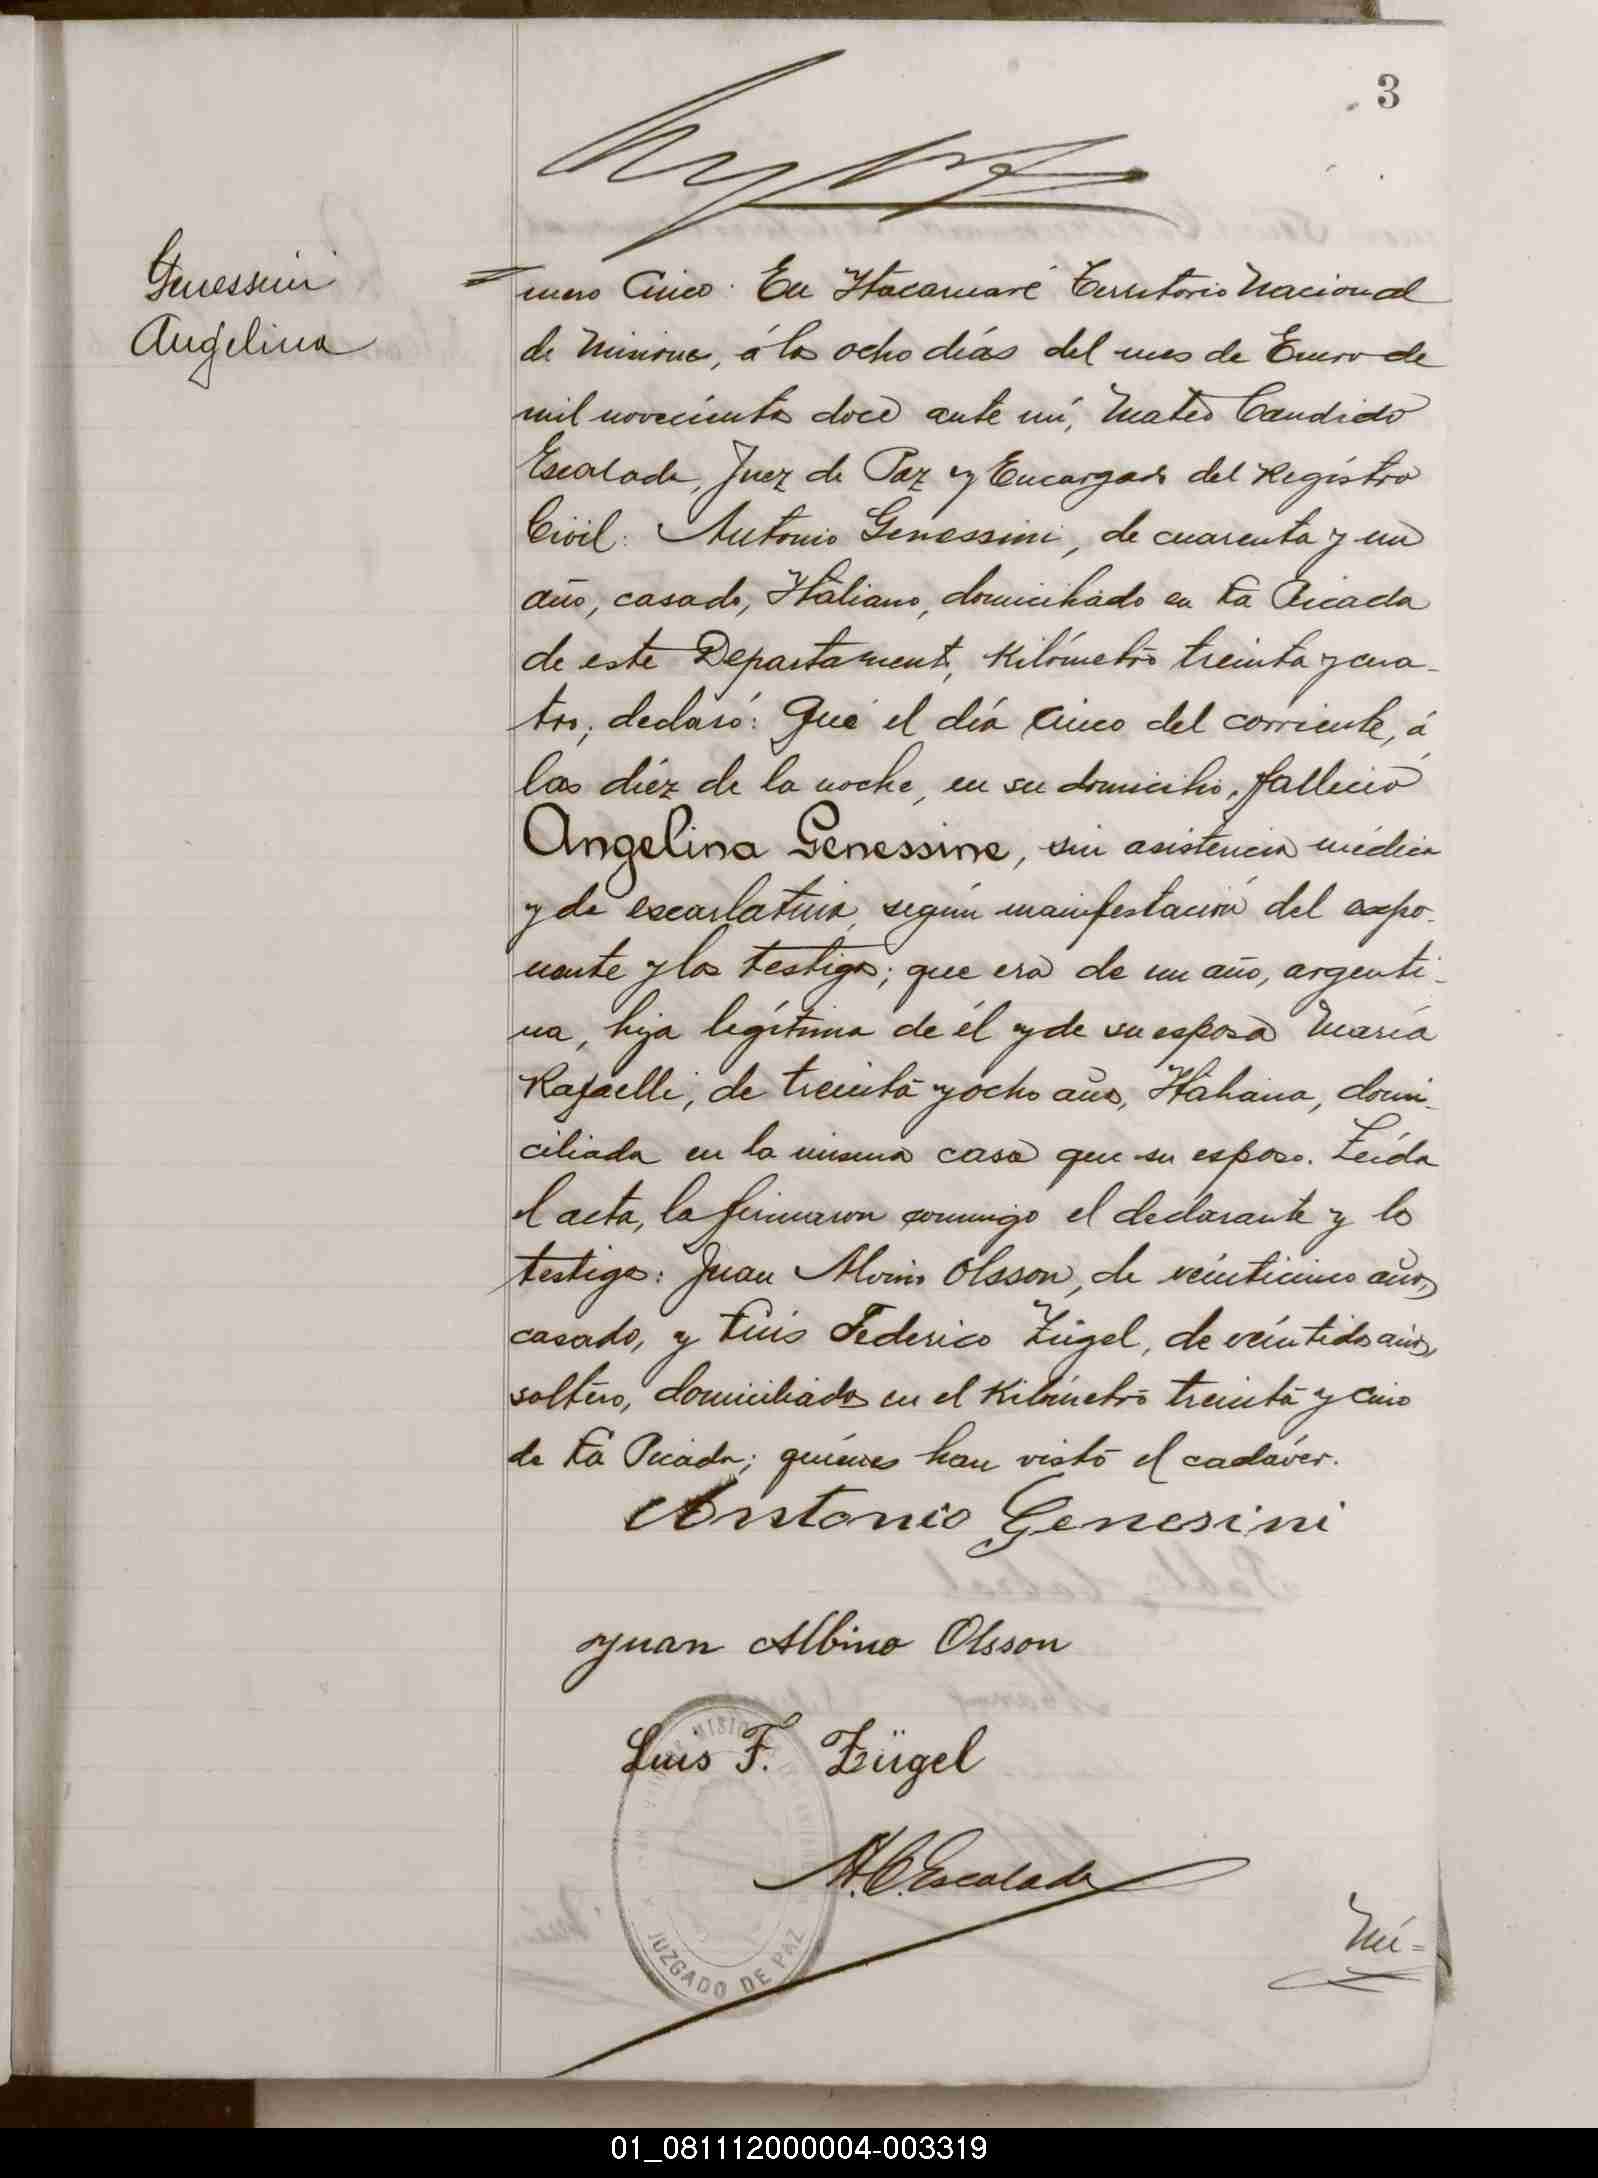 3
Genessini
Angelina
mero Cinco. En Itacaruaré Territorio Nacional
de Misiones, á los ocho días del mes de Enero de
mil novecientos doce ante mí, Mateo Candido
Escalada, Juez de Paz y Encargado del Registro
Civil: Antonio Genessini, de cuarenta y un
año, casado, Italiano, domiciliado en La Picada
de este Departamento, Kilómetro treinta y cua-
tro, declaró: Que el día cinco del corriente, á
las diéz de la noche, en su domicilio, falleció
Angelina Genessine, sin asistencia médica
y de escarlatina, según manifestación del expo-
nente y los testigos; que era de un año, argenti-
na, hija legítima de él y de su esposa María
Rafaelli, de treinta y ocho años, Italiana, domi-
ciliada en la misma casa que su esposo. Leída
el acta, la firmaron conmigo el declarante y los
testigos: Juan Alvino Olsson, de veinticinco años,
casado, y Luis Federico Zügel, de veintidos años,
soltero, domiciliados en el Kilómetro treinta y cinco
de La Picada; quiénes han visto el cadáver.
Antonio Genesini
Juan Albino Olsson
Luis F. Zügel
M.C. Escalada
JUZGADO DE PAZ
Nú=
01_081112000004-003319